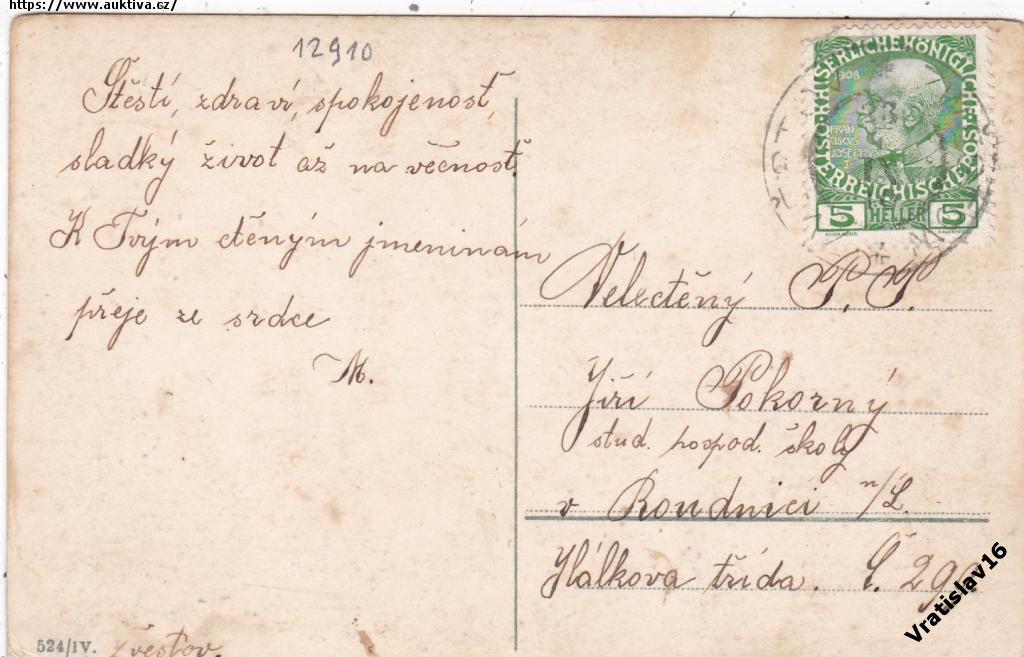 https://www.auktiva.cz/
12910
Štěstí, zdraví, spokojenost,
sladký život až na věčnost.
K Tvým ctěným jmeninám
přeje ze srdce
M.
KAISERLICHE KÖNIGLICHE ÖSTERREICHISCHE POST
1908
FRAN
CISCVS
JOSEPHVS
I.
5 HELLER 5
Velectěný P. T.
Jiří Pokorný
stud. hospod. školy
v Roudnici n/L.
Hálkova třída. Č. 29
524/IV.
Zvěstov.
Vratislav16